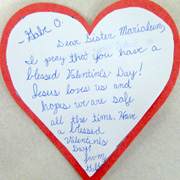 - Gabe O.
Dear Sister Marialein,
I pray that you have a
blessed Valentine's Day!
Jesus loves us and
hopes we are safe
all the time. Have
a blessed
Valentine's
Day!
from,